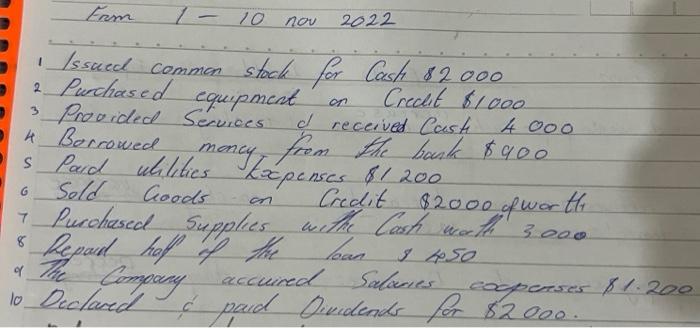 From 1 - 10 nov 2022
1 Issued common stock for Cash $2 000
2 Purchased equipment on Credit $1000
3 Provided Services & received Cash 4 000
4 Borrowed money from the bank $900
5 Paid utilities Expenses $1 200
6 Sold Goods on Credit $2000 of worth
7 Purchased Supplies with Cash worth 3 000
8 Repaid half of the loan $ 450
9 The Company accuired Salaries expenses $1.200
10 Declared & paid Dividends for $2 000.